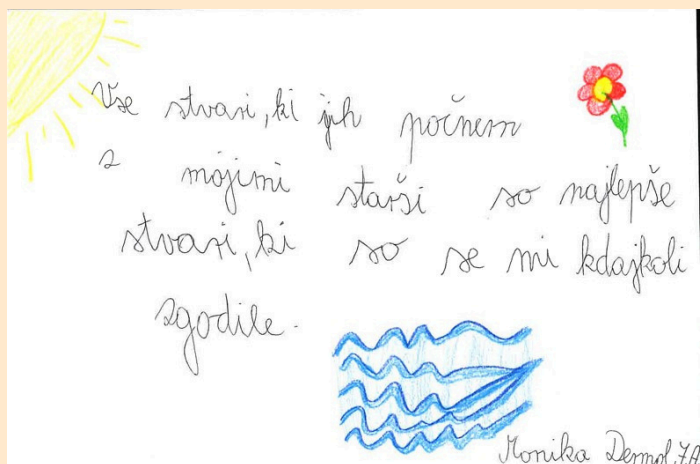 Vse stvari, ki jih počnem
z mojimi starši so najlepše
stvari, ki so se mi kdajkoli
zgodile.
Monika Dermol, 7.A